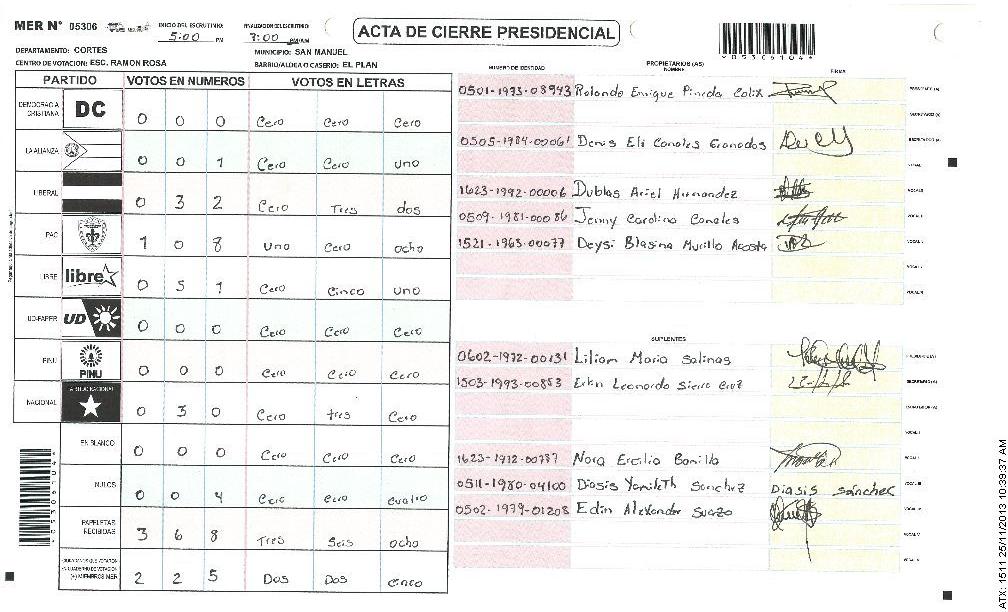 MER Nº 05306 INICIO DEL ESCRUTINIO: 5:00 PM FINALIZACION DEL ESCRUTINIO: 7:00 PM/AM
ACTA DE CIERRE PRESIDENCIAL
*05306104*
DEPARTAMENTO: CORTES MUNICIPIO: SAN MANUEL
CENTRO DE VOTACION: ESC. RAMON ROSA BARRIO/ALDEA O CASERIO: EL PLAN
PARTIDO VOTOS EN NUMEROS VOTOS EN LETRAS
DEMOCRACIA CRISTIANA DC 0 0 0 Cero Cero Cero
LA ALIANZA 0 0 1 Cero Cero uno
LIBERAL 0 3 2 Cero Tres dos
PAC 1 0 8 uno Cero ocho
LIBRE libre 0 5 1 Cero Cinco uno
UD-FAPER UD 0 0 0 Cero Cero Cero
PINU PINU 0 0 0 Cero Cero Cero
NACIONAL 0 3 0 Cero tres Cero
EN BLANCO 0 0 0 Cero Cero Cero
NULOS 0 0 4 Cero Cero cuatro
PAPELETAS RECIBIDAS 3 6 8 Tres Seis ocho
CIUDADANOS QUE VOTARON EN CUADERNO DE VOTACION (+) MIEMBROS MER 2 2 5 Dos Dos cinco
*05306104*
NUMERO DE IDENTIDAD PROPIETARIOS (AS) NOMBRE FIRMA
0501-1973-08943 Rolando Enrique Pineda Colix PRESIDENTE (A)
SECRETARIO (A)
0505-1984-00061 Denis Eli Canales Granados ESCRUTADOR (A)
VOCAL I
1623-1992-00006 Dublas Ariel Hernandez VOCAL II
0509-1981-00086 Jenny Carolina Canales
1521-1963-00077 Deysi Blasina Murillo Acosta
SUPLENTES
0602-1972-00131 Liliam Maria Salinas PRESIDENTE (A)
1503-1993-00853 Erlin Leonardo Sierra Cruz SECRETARIO (A)
ESCRUTADOR (A)
VOCAL I
1623-1972-00787 Nora Ercilia Bonilla
0511-1980-04100 Diasis Yamileth Sanchez Diasis sánchez
0502-1979-01208 Edin Alexander Suazo
ATX: 1511 25/11/2013 10:39:37 AM